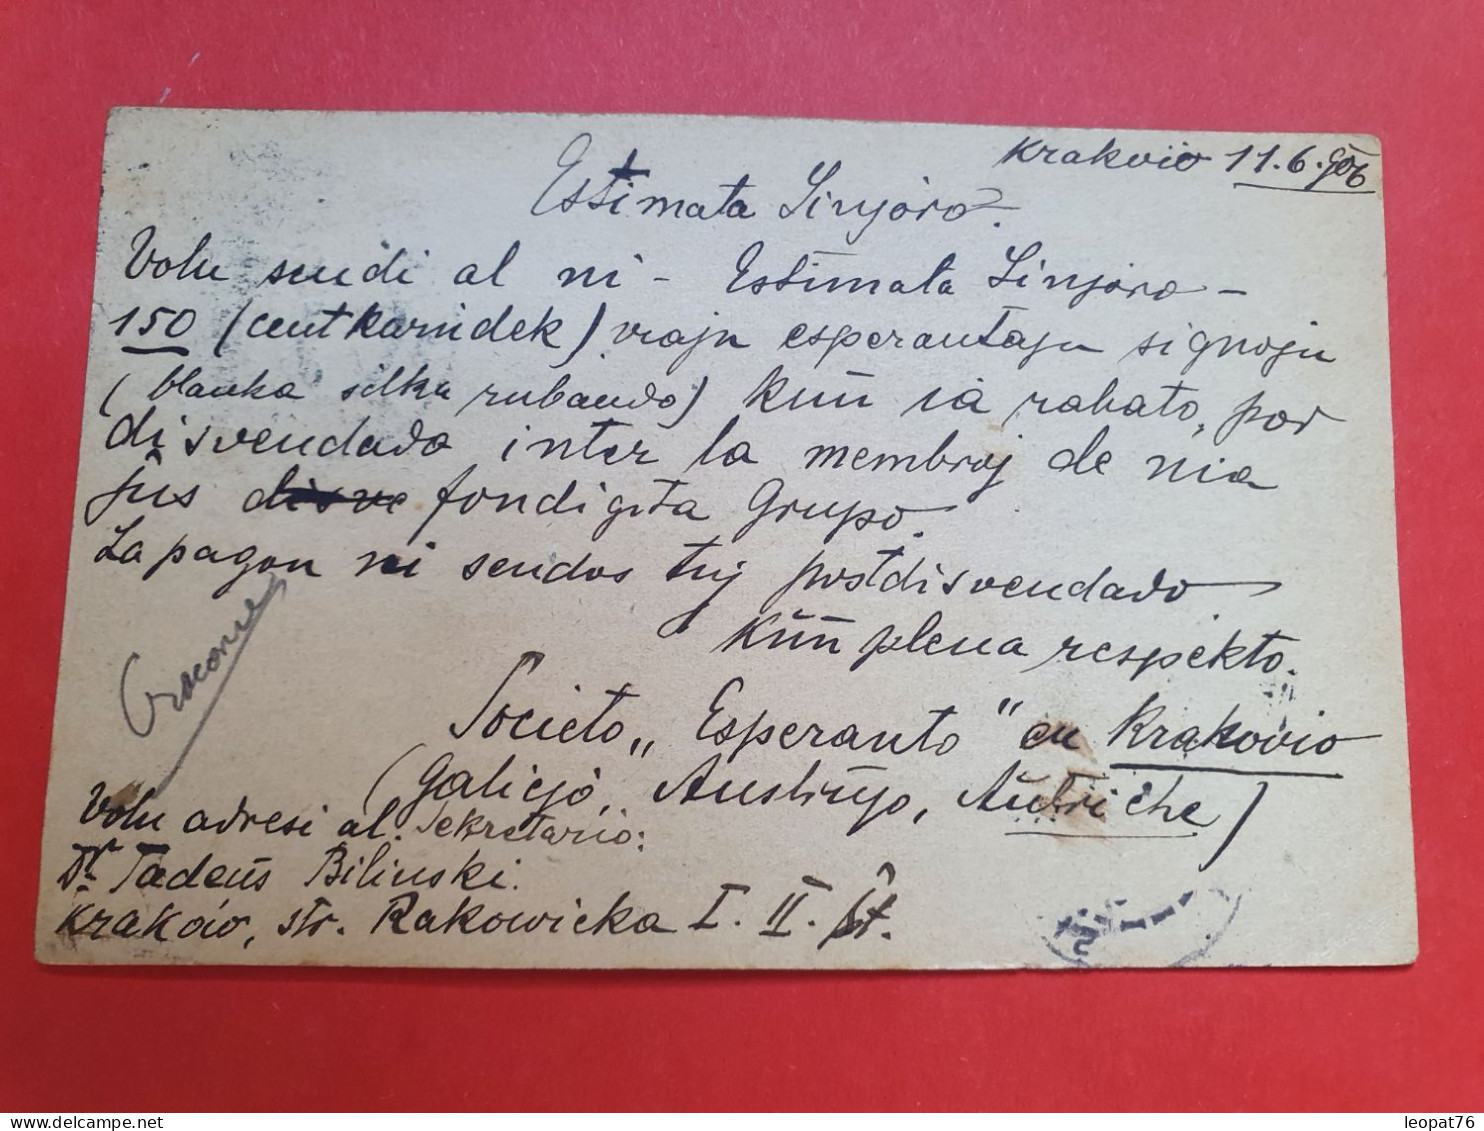 Krakovio 11.6.906
Estimata Sinjoro.
Volu sendi al ni – Estimata Sinjoro –
150 (centkvindek) vrajn esperantajn signojn
(blanka silka rubando) kun ia rabato, por
disvendado inter la membroj de nia
ĵus fondigita Grupo.
La pagon ni sendos tuj postdisvendado
Kun plena respekto.
Societo „Esperanto" en Krakovio
(Galicjo, Austrijo, Autriche)
Cracovie
Volu adresi al Sekretario:
Dr. Tadeus Bilinski.
Kraków, str. Rakowicka I. II. St.
leopat76